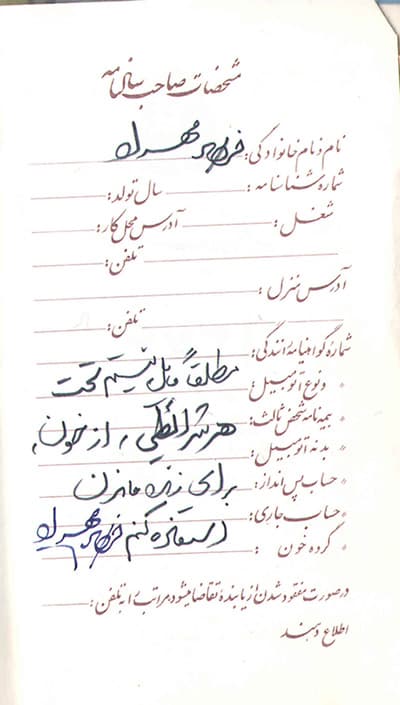 مشخصات صاحب سالنامه
نام و نام خانوادگی: فریدون مهدی
شماره شناسنامه: سال تولد:
شغل: آدرس محل کار:
تلفن:
آدرس منزل:
تلفن:
شماره گواهینامه رانندگی:
و نوع اتومبیل: مطلقاً مایل نیستم تحت
بیمه نامه شخص ثالث:
هر شرائطی، از خون
بدنه اتومبیل:
حساب پس انداز: برای زنده ماندن
حساب جاری:
استفاده کنم
گروه خون:
در صورت مفقود شدن از یابنده تقاضا میشود مراتب را به تلفن:
اطلاع دهند